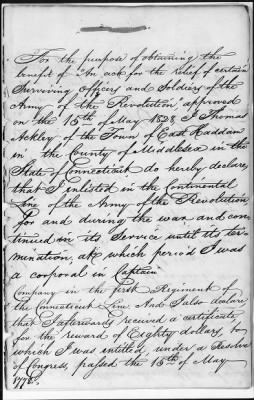 For the purpose of obtaining the
benefit of "An act for the relief of certain
Surviving Officers and Soldiers of the
Army of the Revolution" approved
on the 15th of May 1828, I Thomas
Ackley of the Town of East Haddam
in the County of Middlesex in the
State of Connecticut do hereby declare,
that I inlisted in the Continental
line of the Army of the Revolution
for and during the war and con-
tinued on its service until its ter-
mination, at which period I was
a corporal in Captain
Company in the first Regiment of
the Connecticut Line. And I also declare
that I afterwards received a certificate
for the reward of Eighty dollars, to
which I was entitled, under a Resolve
of Congress, passed the 15th of May
1778.